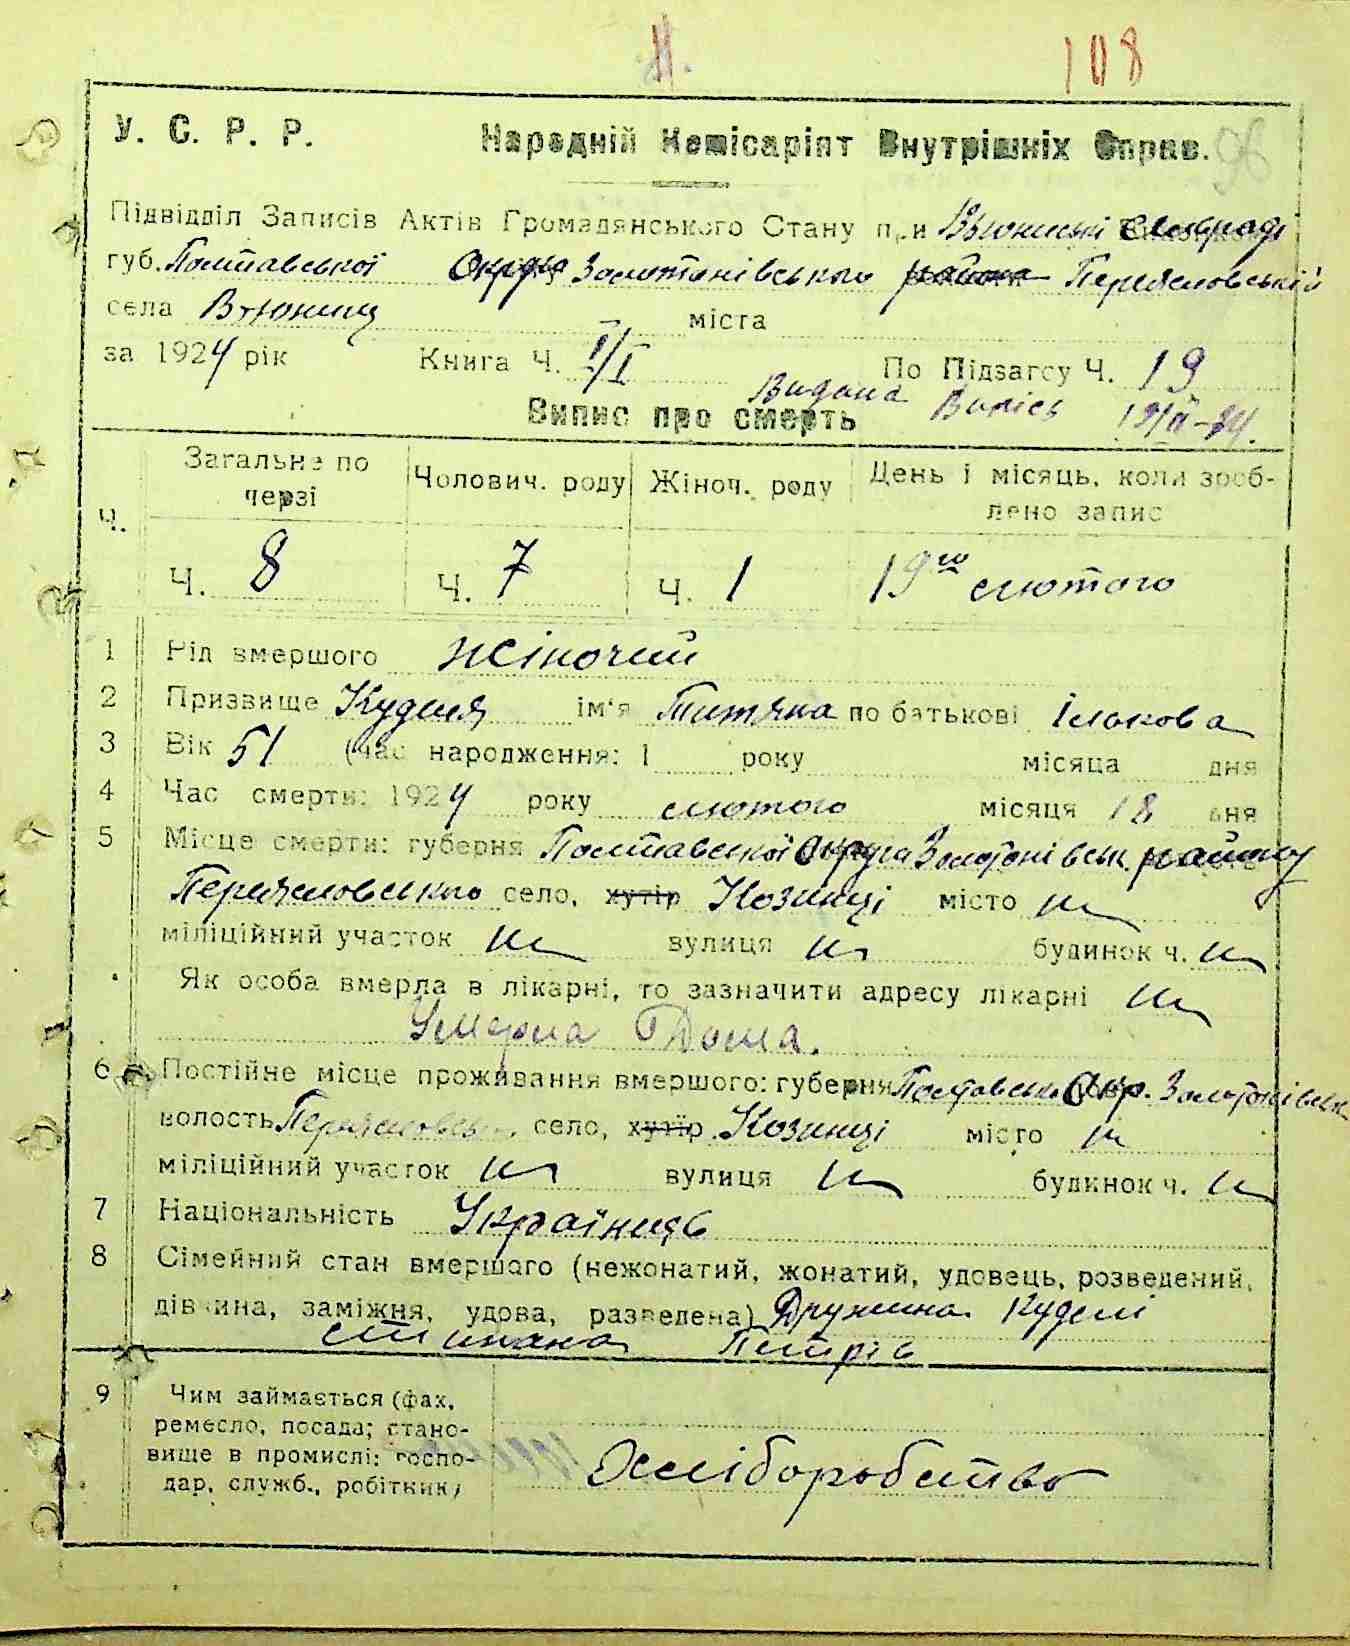 Н. 108
У. С. Р. Р. Народній Комісаріят Внутрішніх Справ. 96
Підвідділ Записів Актів Громадянського Стану при Вьюниські сельраді
губ. Полтавської Округа Золотонівського района Переяславській
села Вьюнищ міста
за 1924 рік Книга Ч. I/I По Підзагсу Ч. 19
Видана Випісь 19/II-24.
Випис про смерть
Ч. Загальне по черзі Чолович. роду Жіноч. роду День і місяць, коли зроб-
лено запис
Ч. 8 Ч. 7 Ч. 1 19го лютого
1 Рід вмершого жіночий
2 Призвище Куделя ім'я Титяна по батькові Ількова
3 Вік 51 (час народження: 1 року місяца дня
4 Час смерти: 1924 року лютого місяця 18 дня
5 Місце смерти: губерня Полтавської Округа Золотонівськ. району
Переяславського село, хутір Козинці місто
міліційний участок вулиця будинок ч.
Як особа вмерла в лікарні, то зазначити адресу лікарні
Умерла Дома.
6 Постійне місце проживання вмершого: губерня Полтавськ Окр. Золотонівськ.
волость Переяславськ. село, хутір Козинці місто
міліційний участок вулиця будинок ч.
7 Національність Українець
8 Сімейний стан вмершого (нежонатий, жонатий, удовець, розведений,
дівчина, заміжня, удова, разведена) Дружина Куделі
Степана Петрів
9 Чим займається (фах,
ремесло, посада; стано-
вище в промислі: госпо-
дар, служб., робітник)
Хліборобство